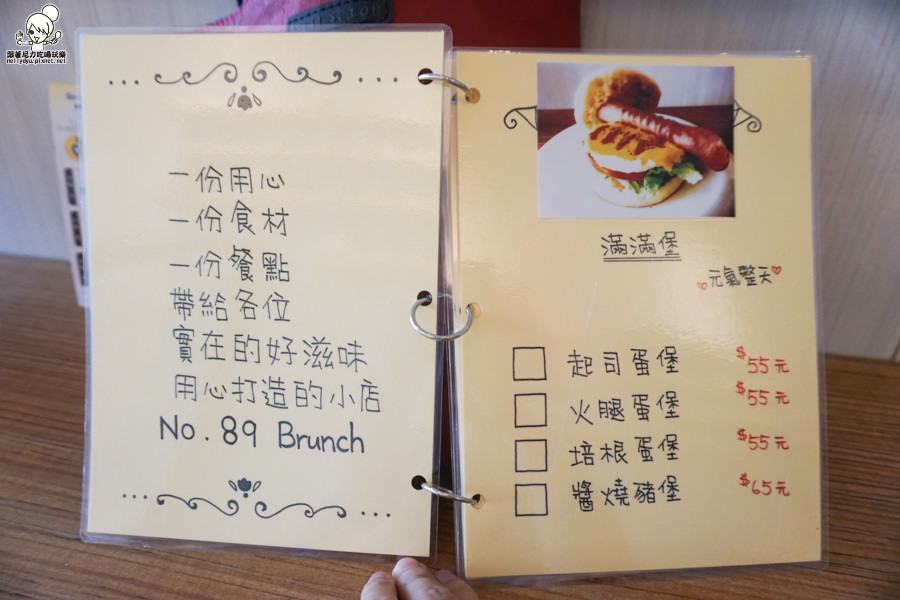 跟著尼力吃喝玩樂
nellydyu.pixnet.net
一份用心
一份食材
一份餐點
帶給各位
實在的好滋味
用心打造的小店
No. 89 Brunch
滿滿堡
元氣整天
起司蛋堡 $55元
火腿蛋堡 $55元
培根蛋堡 $55元
醬燒豬堡 $65元